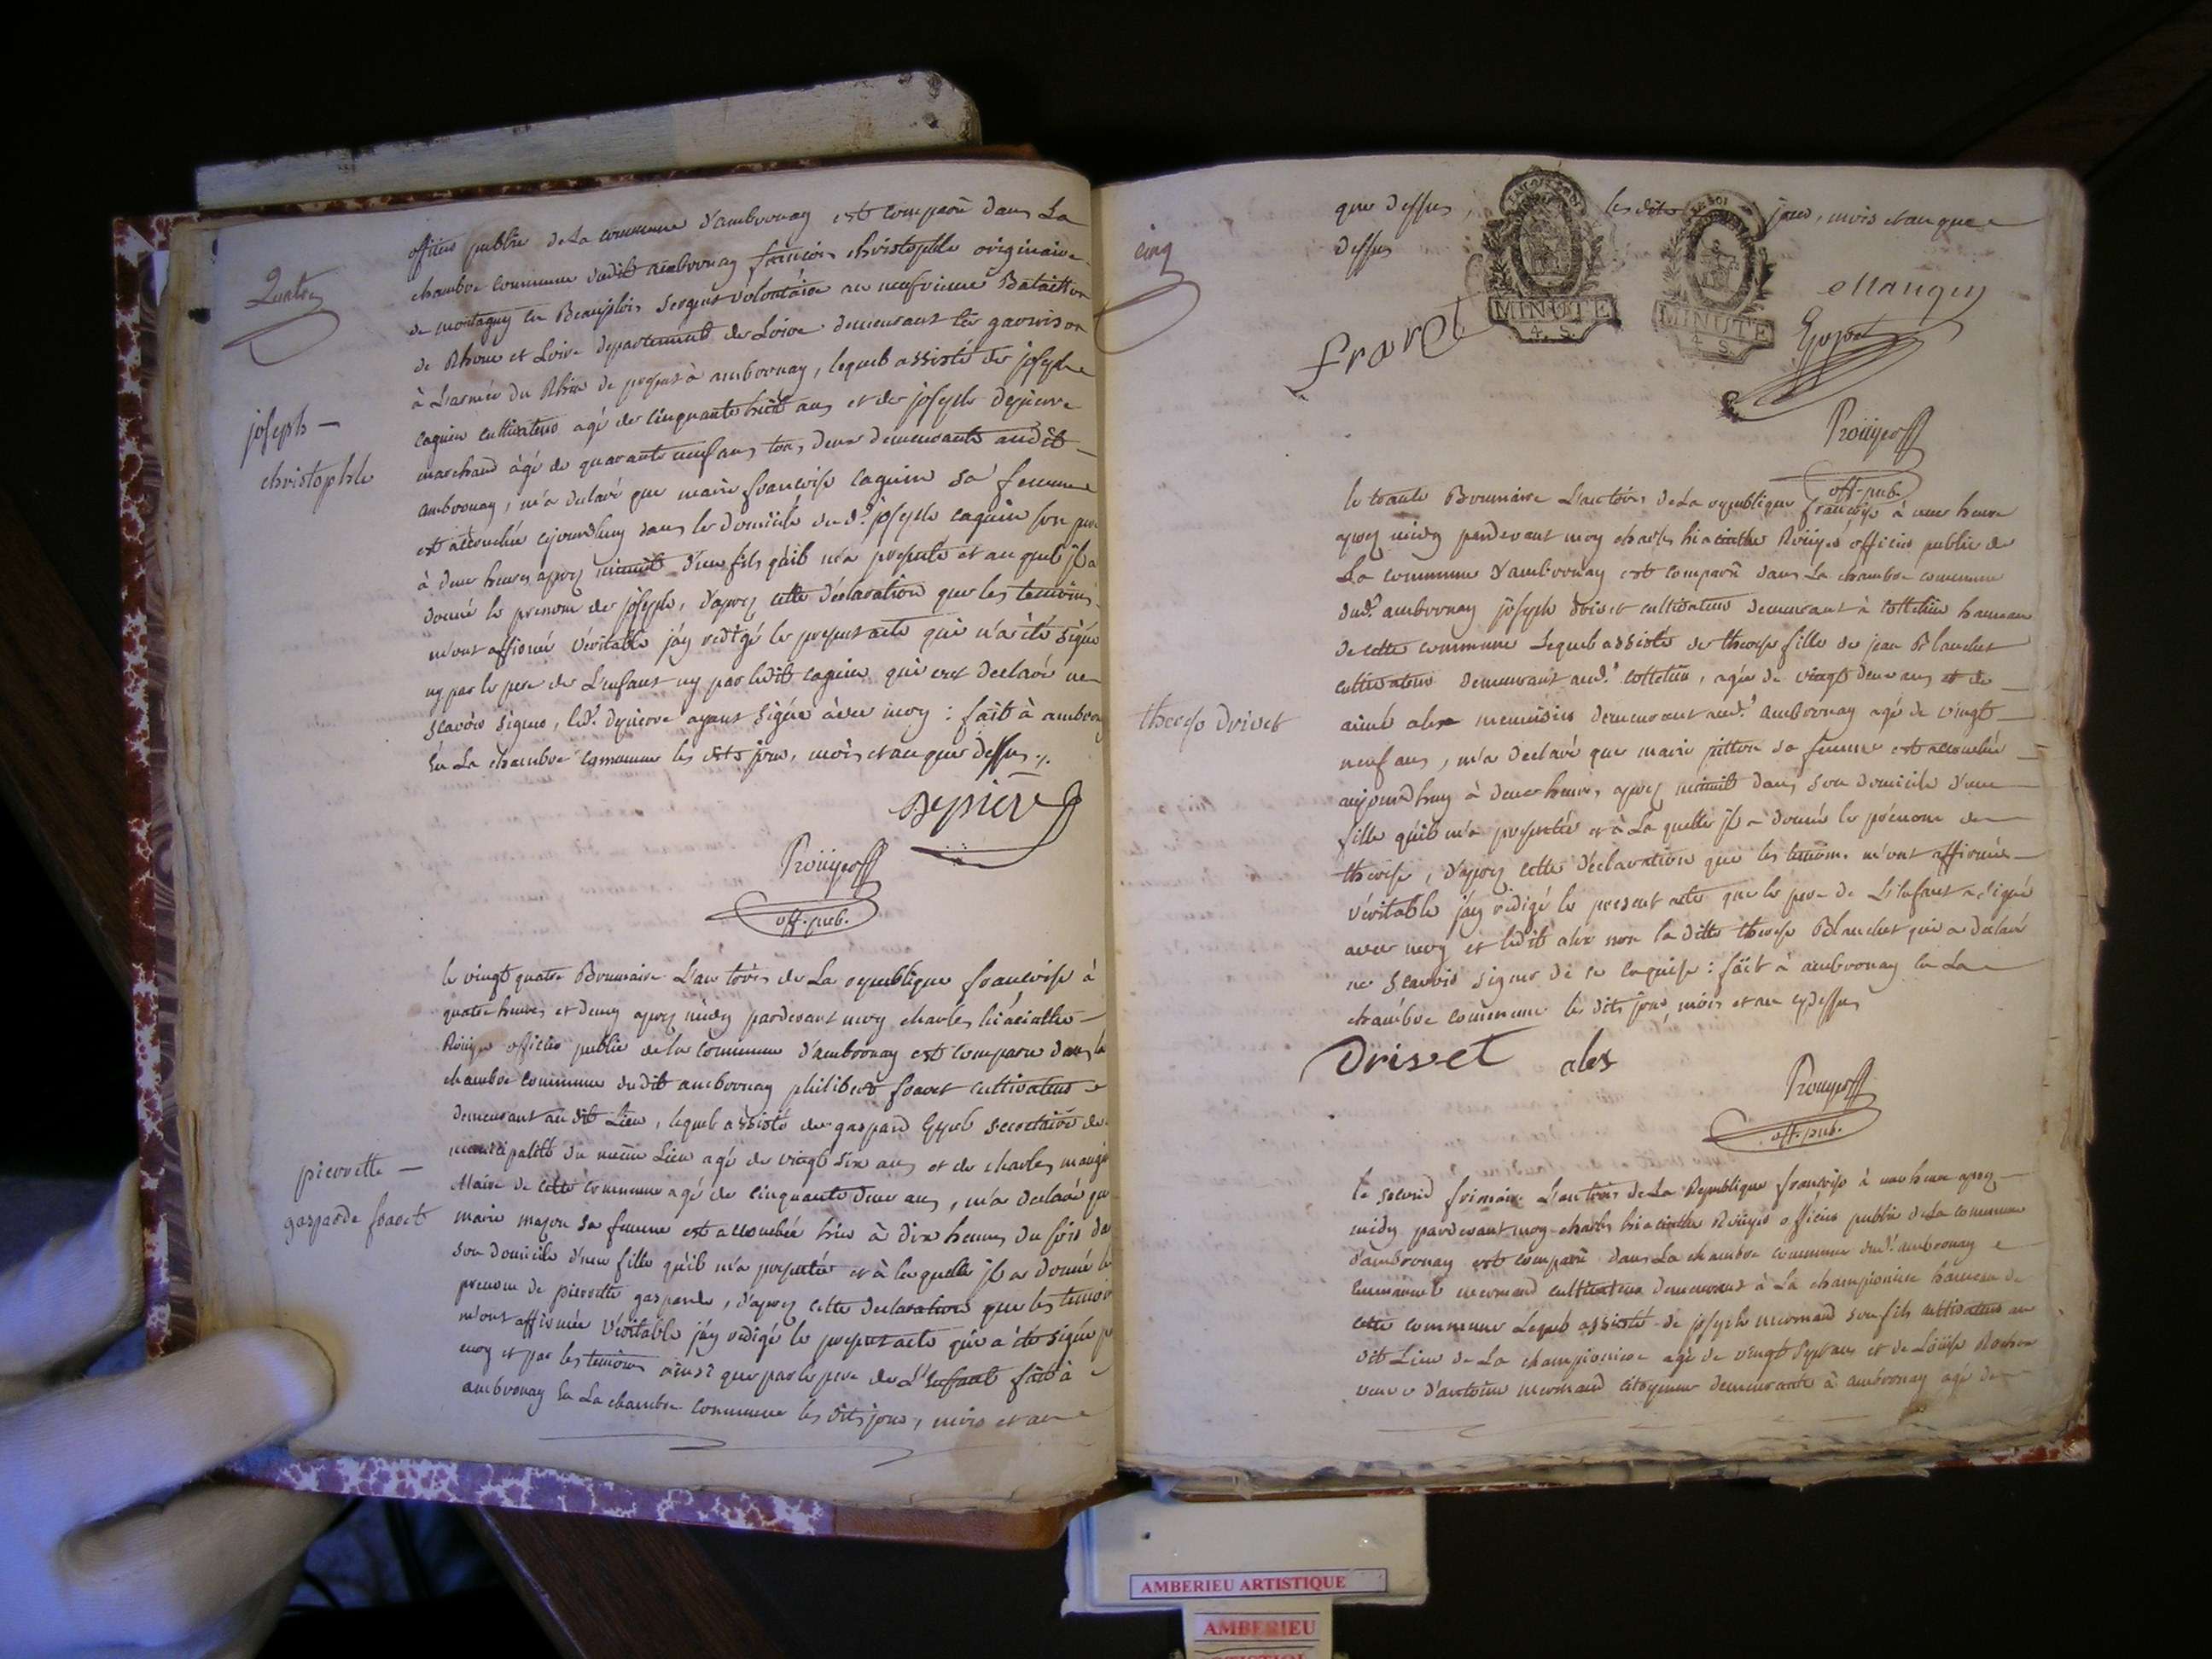 Quatre
joseph —
christophle
officier public de La commune d'ambronay est comparû dans La
chambre commune dudit ambronay francois christophle originaire
de montagny en Beaujolois sergent volontaire au neufvieme Bataillon
de Rhone et Loire departement de Loire demeurant en garnison
à L'armée du Rhin de present à ambronay, lequel assisté de joseph
caguin cultivateur agé de cinquante huit ans et de joseph depierre
marchand âgé de quarante neuf ans tous deux demeurants audit
ambronay, m'a declaré que marie francoise caguin sa femme
est accouchée ejourdhuy dans le domicile du d.t joseph caguin son pere
à deux heures apres minuit d'un fils qu'il m'a presenté et auquel jl a
donné le prenom de joseph, d'apres cette déclaration que les temoins
m'ont affirmé véritable j'ay redigé le present acte qui n'a été signé
ny par le pere de L'enfant ny par ledit caguin qui ont declaré ne
scavoir signer, led.t depierre ayant signé avec moy : fait à ambronay
En La chambre commune les dits jour, mois et an que dessus ./.
Depierre
Roüyer
off. pub.
pierrette —
gasparde fravet
le vingt quatre Brumaire L'an trois de La republique francoise à
quatre heures et demy apres midy pardevant moy charles hiacinthe
Roüyer officier public de la commune d'ambronay est comparu dans la
chambre commune dudit ambronay philibert fravet cultivateur
demeurant au dit Lieu, lequel assisté de gaspard Goyet secretaire de
municipalité du même Lieu agé de vingt six ans et de charles mangin
Maire de cette commune agé de cinquante deux ans, m'a declaré que
marie mazou sa femme est accouchée hier à dix heures du soir dans
son domicile d'une fille qu'il m'a presentée et à laquelle jl a donné le
prenom de pierrette gasparde, d'apres cette declaration que les temoins
m'ont affirmée Véritable j'ay redigé le present acte qui a été signé par
moy et par les temoins ainsi que par le pere de L'Enfant fait à
ambronay En La chambre commune les dits jour, mois et an
cinq
que dessus, les dits jour, mois et an que
dessus
MINUTE
4. S.
MINUTE
4 S.
Mangin
fravet
Roüyer
off. pub.
therese Drivet
le trante Brumaire L'an trois de La republique francoise à une heure
apres midy pardevant moy charles hiacinthe Roüyer officier public de
La commune d'ambronay est comparû dans La chambre commune
dud.t ambronay joseph drivet cultivateur demeurant à Cottelieu hameau
de cette commune Lequel assisté de therese fille de jean Blanchet
cultivateur demeurant aud.t Cottelieu, agée de vingt deux ans et de
aimé alex menuisier demeurant aud.t ambronay agé de vingt
neuf ans, m'a declaré que marie pitton sa femme est accouchée
aujourdhuy à deux heures apres minuit dans son domicile d'une
fille qu'il m'a presentée et à La quelle jl a donné le prénom de
therese, d'apres cette déclaration que les temoins m'ont affirmée
véritable j'ay redigé le present acte que le pere de L'enfant a signé
avec moy et ledit alex non la ditte therese Blanchet qui a declaré
ne scavoir signer de ce requise : fait à ambronay en La
chambre commune les dits jour, mois et an cydessus
Drivet alex
Rouyer
off. pub.
le second frimaire L'an trois de La Republique francoise à une heure apres
midy pardevant moy charles hiacinthe Roüyer officier public de La commune
d'ambronay est comparû dans La chambre commune dud.t ambronay
Emmanuel mermand cultivateur demeurant à La championiere hameau de
cette commune Lequel assisté de joseph mermand son fils cultivateur au
dit Lieu de La championiere agé de vingt sept ans et de Loüise
veuve d'antoine mermand citoyenne demeurante à ambronay agé de
AMBERIEU ARTISTIQUE
AMBERIEU